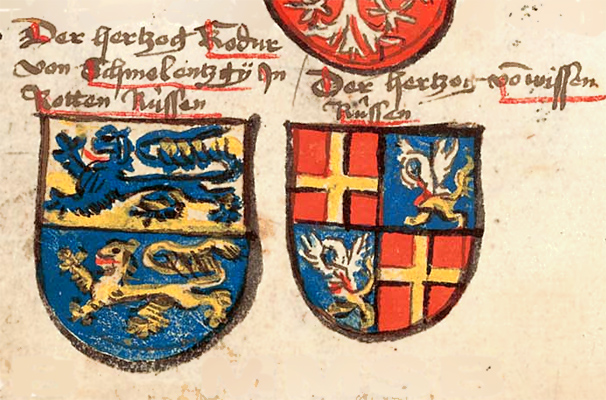 Der hertzog Fodur
von Schmelentzgÿ Jn
Rotten Rüssen
Der hertzog võ wissen
Rüssen